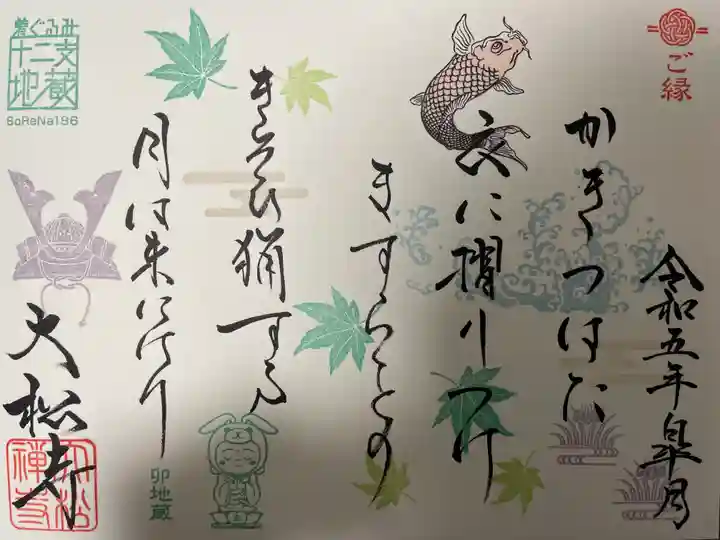 ご縁
令和五年皐月
かきつはた
衣に摺りつけ
ますらをの
きそひ猟する
月は来にけり
大松寺
着ぐるみ
十二支
地蔵
SoReNa186
卯地蔵